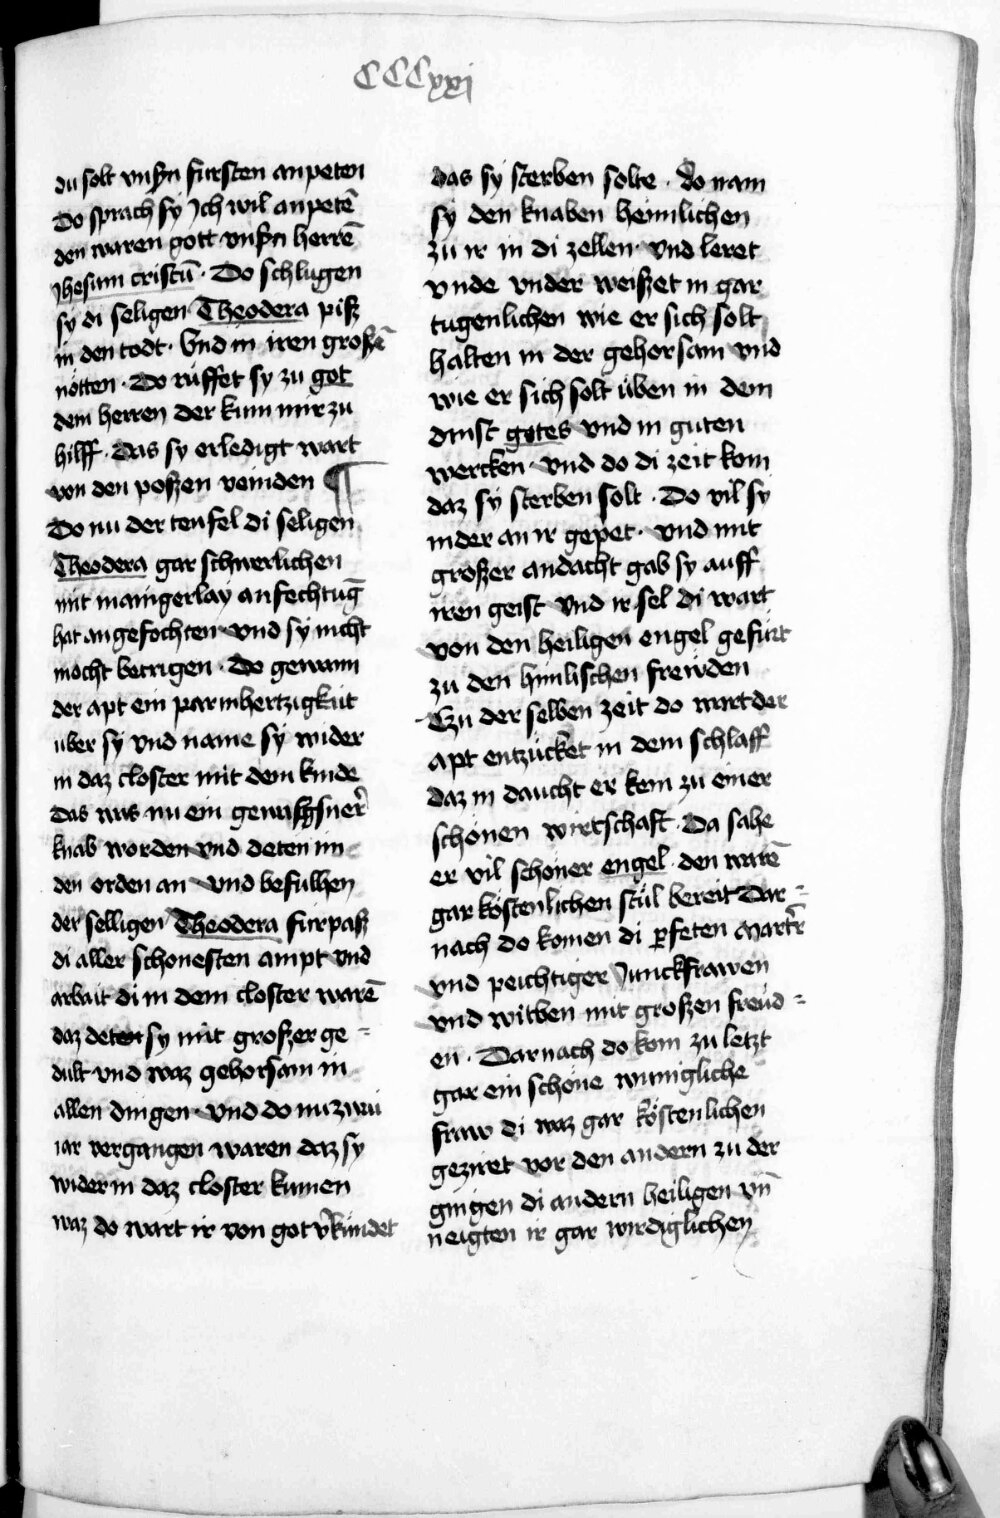 CCCxxj
du solt vnsern fursten anpeten
Do sprach sy Ich wil anpetē
den waren gott vnsern herrē
Jhesum cristū · Do schlugen
sy di seligen Theodera pisz
in den todt · Vnd in iren groszē
nötten · Do rüffet sy zu got
dem herren der kum mir zu
hilff · Das sy erledigt wart
von den poszen veinden ¶
Do nu der teufel di seligen
Theodera gar schwerlichen
mit maingerlay anfechtūg
hat angefochten vnd sy nicht
mocht betrigen · Do gewann
der apt ein parmhertzigkait
uber sy vnd name sy wider
in daz closter mit dem kinde
Das was nu ein gewachsner
knab worden vnd deten im
den orden an vnd befulhen
der selligen Theodera furpasz
di aller schonesten ampt vnd
arbait di in dem closter warē
daz deten sy mit groszer ge =
dult vnd waz gehorsam in
allen dingen · vnd do nu zwai
iar vergangen waren daz sy
wider in daz closter kumen
waz do wart ir von got v̄kündet
das sy sterben solte · do nam
sy den knaben heimlichen
zu ir in di zellen vnd leret
vnde vnder weiszet in gar
tugenlichen wie er sich solt
halten in der gehorsam vnd
wie er sich solt üben in dem
dinst gotes vnd in guten
wercken · vnd do di zeit kom
daz sy sterben solt · Do vil sy
nider an ir gepet · vnd mit
groszer andacht gab sy auff
iren geist vnd ir sel di wart
von den heiligen engel gefürt
zu den himlischen frewden
Czu der selben zeit do wart der
apt entzücket in dem schlaff
daz in daucht er kem zu einer
schönen wirtschaft · Da sahe
er vil schöner engel · den warē
gar köstenlichen stül bereit Dar =
nach do komen di ꝓfeten martr̄
vnd peichtiger Junckfrawen
vnd witben mit groszen freüd =
en · Darnach do kom zu letzt
gar ein schöne wunigliche
fraw di waz gar köstenlichen
geziret vor den andern zu der
gingen di andern heiligen vn̄
neigten ir gar wirdiglichen